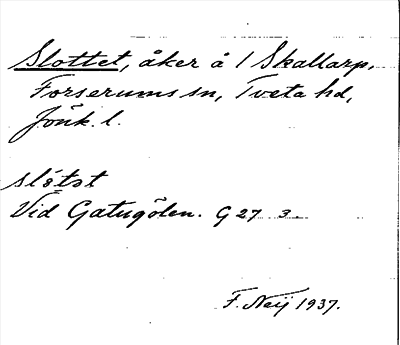 Slottet, åker å 1 Skallarp,
Forserums sn, Tveta hd,
Jönk. l.
slo̍tət
Vid Gatugölen. G 27 3.
F. Neij 1937.